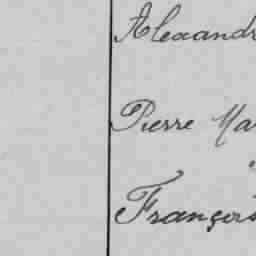 Alexandr
Pierre Ma
François